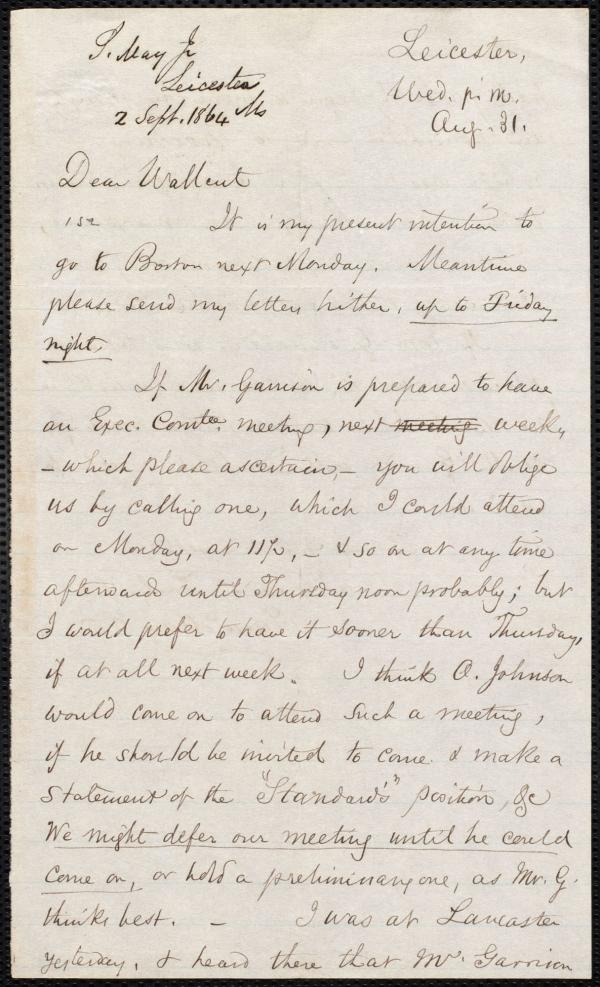 S. May Jr
Leicester Ms
2 Sept. 1864
Leicester,
Wed. p. m.
Aug. 31.
Dear Wallcut
It is my present intention to
go to Boston next Monday. Meantime
please send my letters hither, up to Friday
night.
If Mr. Garrison is prepared to have
an Exec. Comtee. meeting, next meeting week,
– which please ascertain, – you will oblige
us by calling one, which I could attend
on Monday, at 11½, – & so on at any time
afterwards until Thursday noon probably; but
I would prefer to have it sooner than Thursday,
if at all next week. I think O. Johnson
would come on to attend such a meeting,
if he should be invited to come & make a
statement of the "Standard's" position, &c
We might defer our meeting until he could
come on, or hold a preliminary one, as Mr. G.
thinks best. – I was at Lancaster
yesterday, & heard there that Mr. Garrison